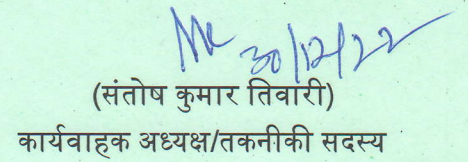 30/12/22
(संतोष कुमार तिवारी)
कार्यवाहक अध्यक्ष/तकनीकी सदस्य